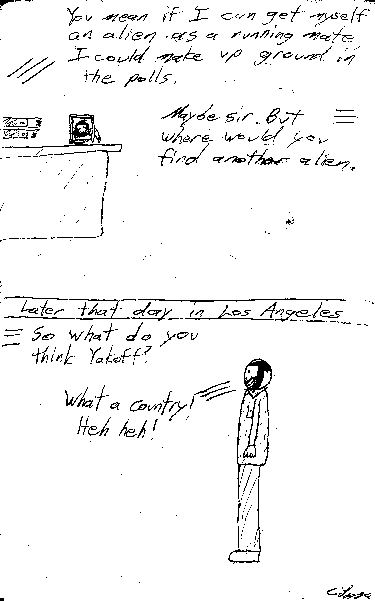 You mean if I can get myself
an alien as a running mate
I could make up ground in
the polls.
Maybe sir. But
where would you
find another alien.
Later that day in Los Angeles
So what do you
think Yakoff?
What a country!
Heh heh!